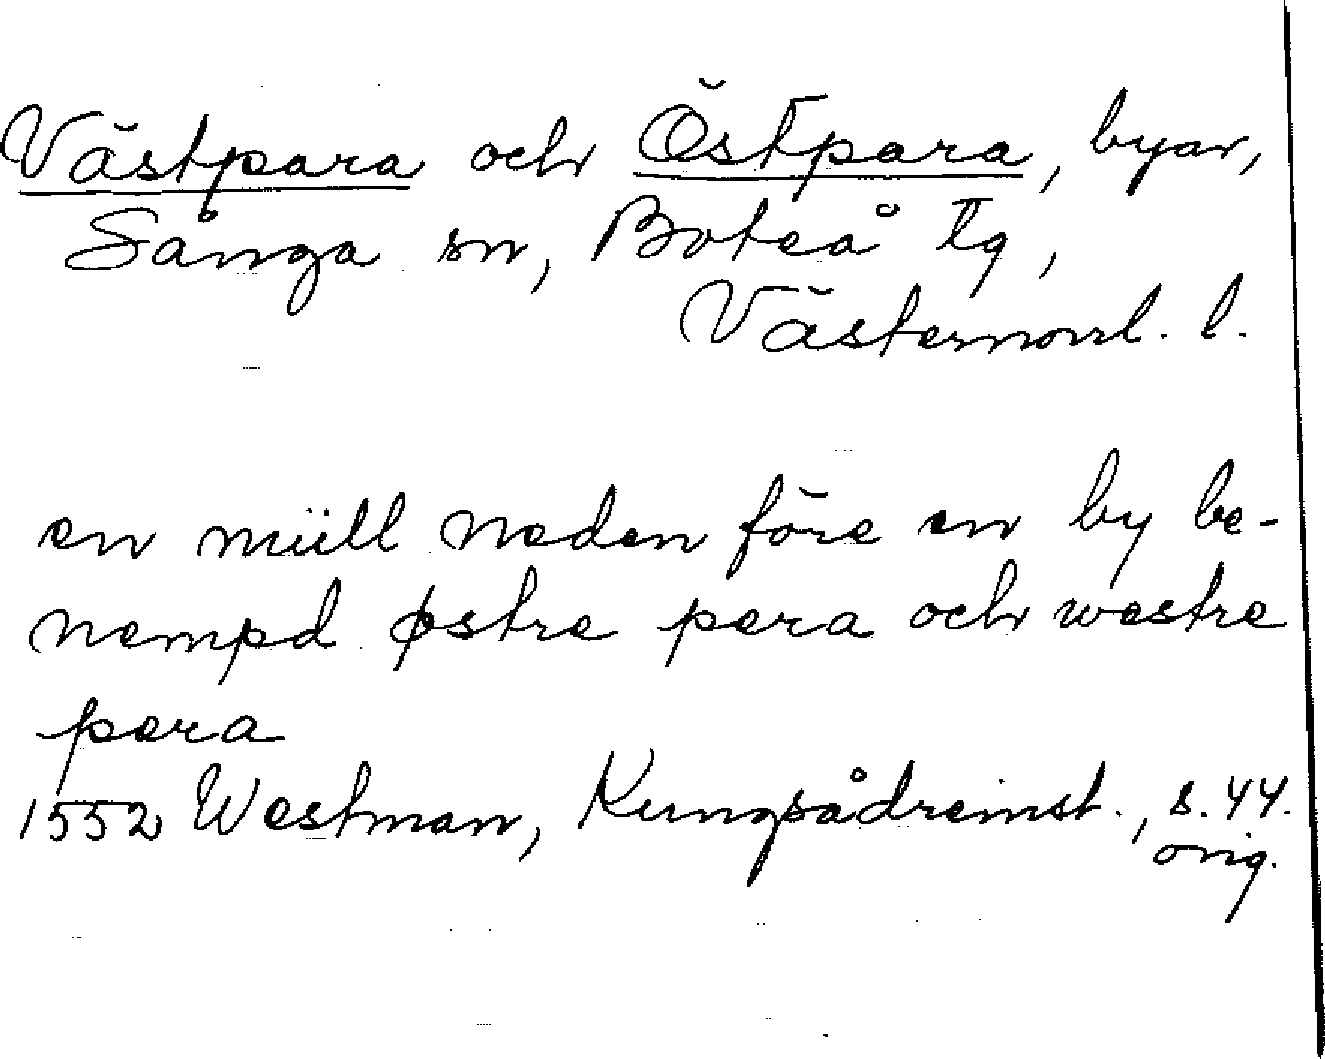 Västpara och Östpara, byar,
Sånga sn, Boteå tg,
Västernorrl. l.
en müll neden före en by be-
nempd østre pera och westre
pera
1552 Westman, Kungsådreinst., s. 44.
orig.